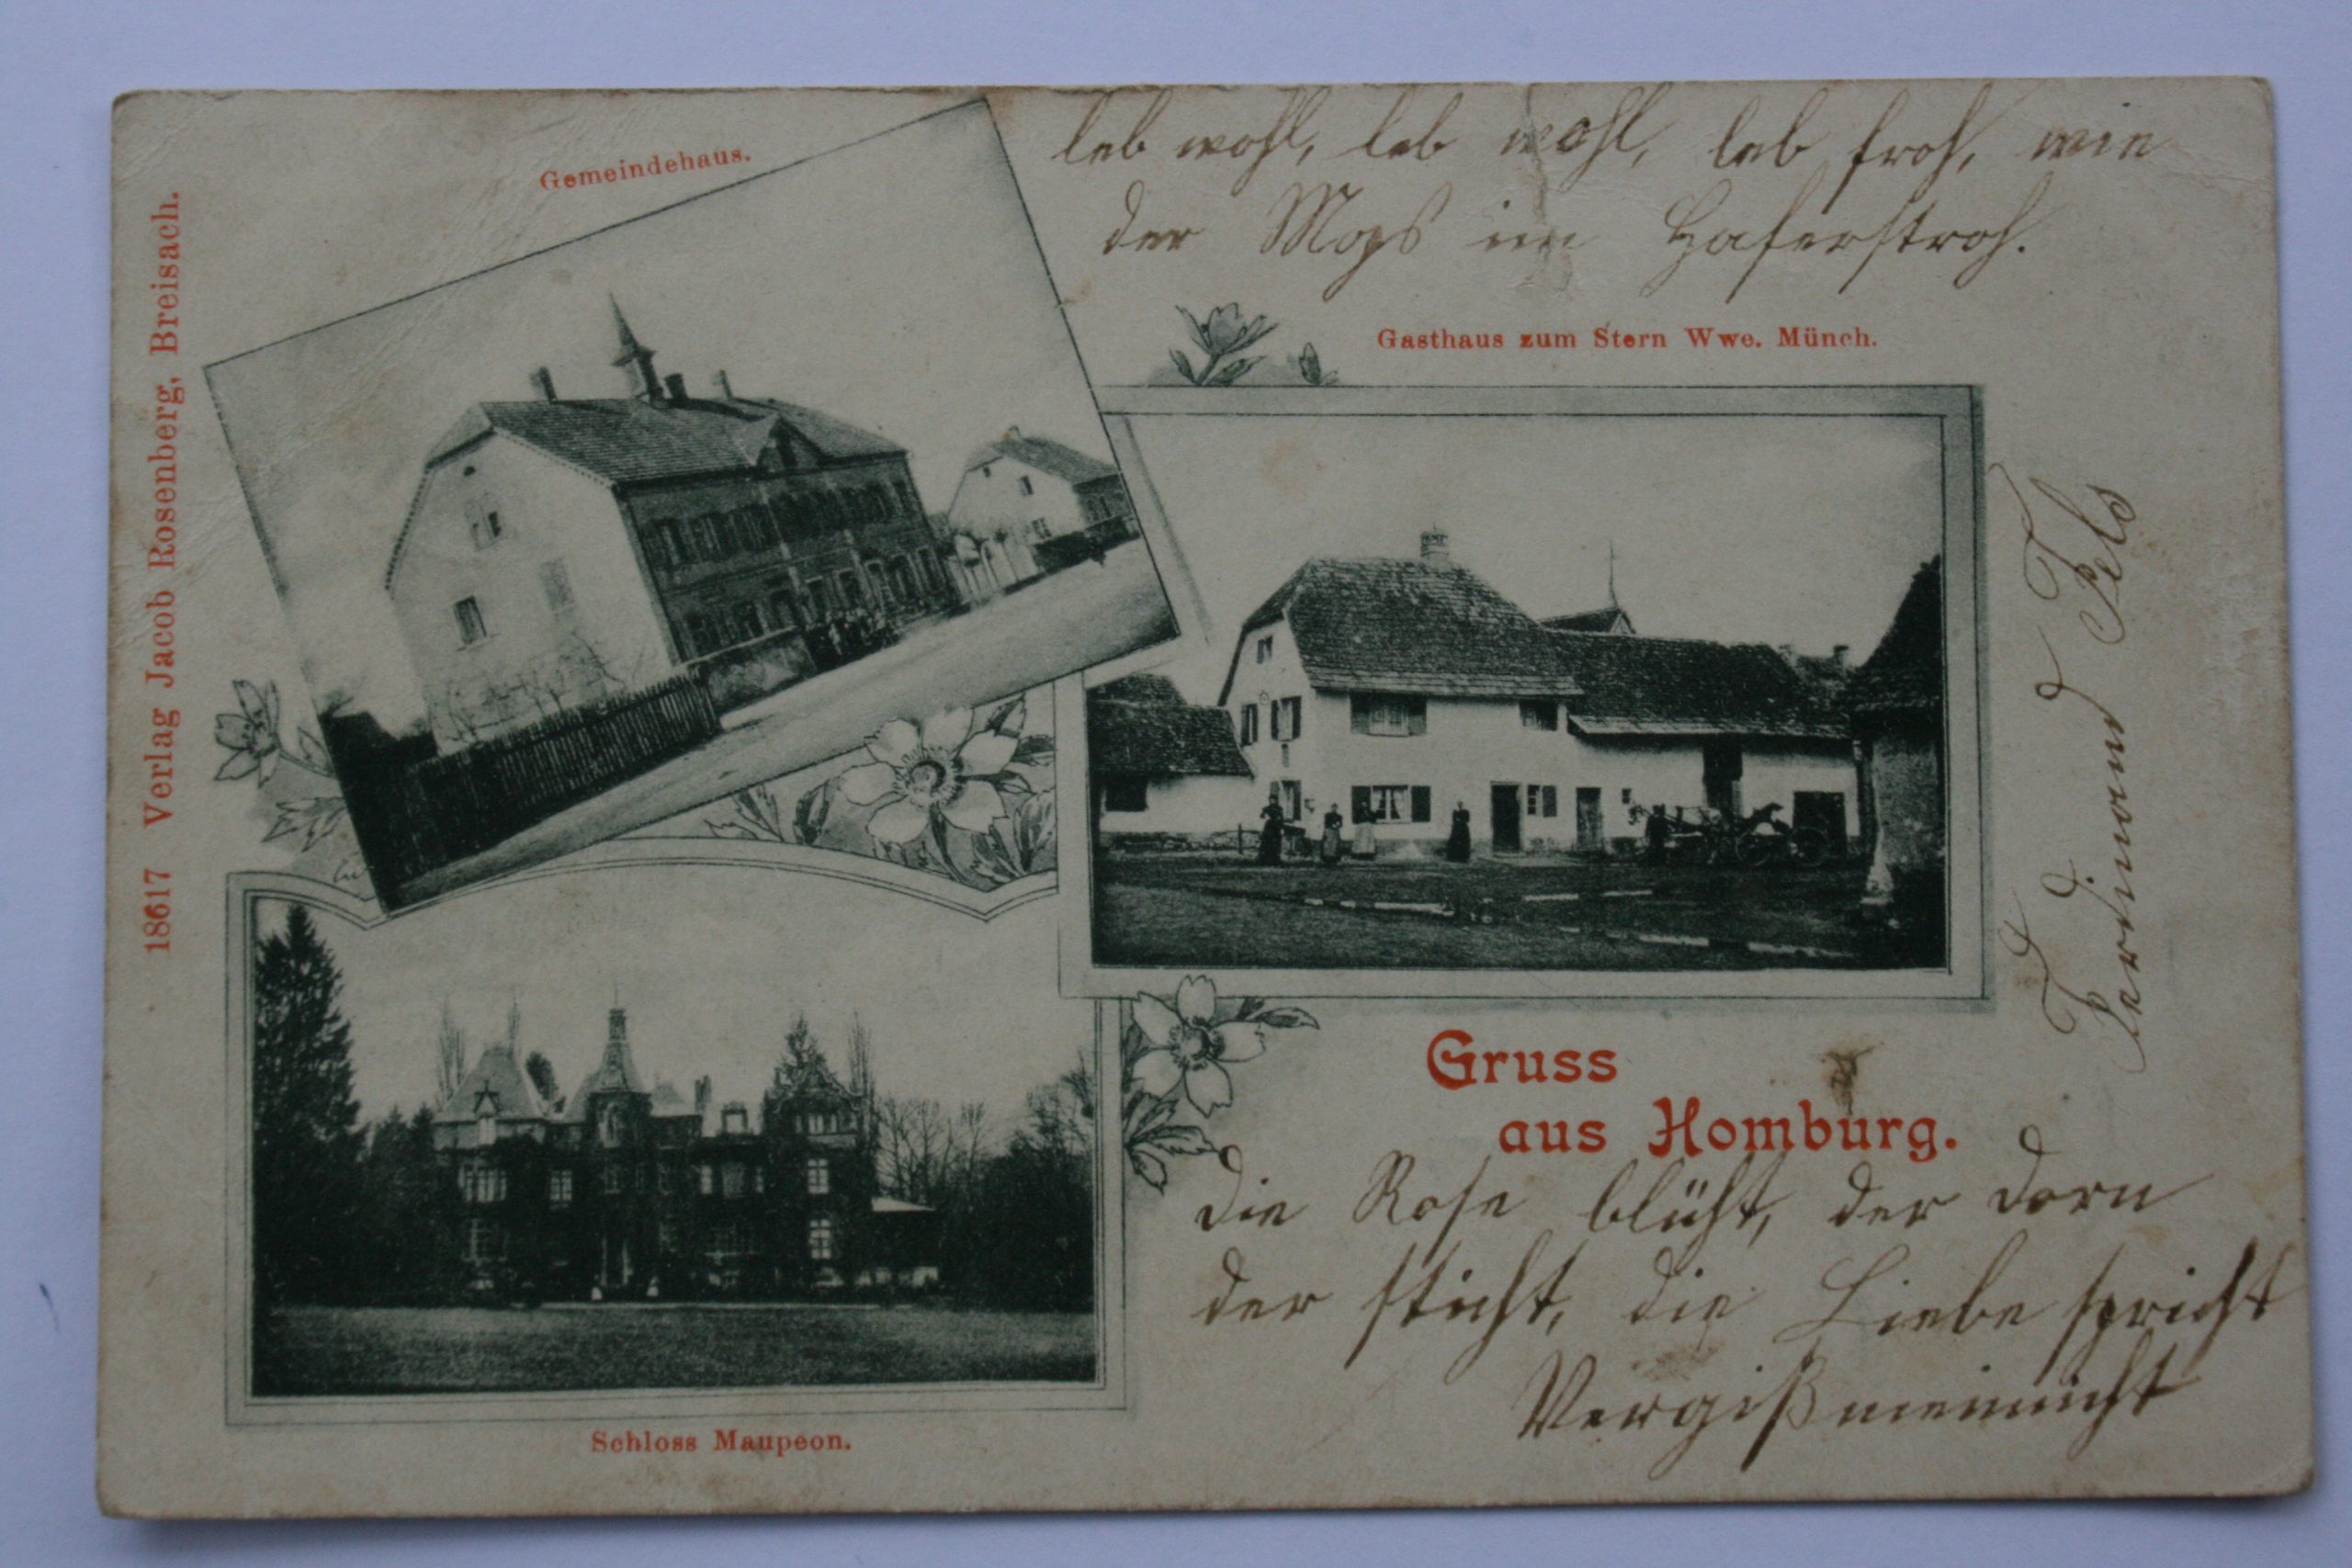 leb wohl, leb wohl, leb froh, wie
der Mops im Haferstroh.
Gemeindehaus.
Gasthaus zum Stern Wwe. Münch.
18617 Verlag Jacob Rosenberg, Breisach.
Ferdinand Fels
Gruss
aus Homburg.
die Rose blüht, der Dorn
der sticht, die Liebe spricht
Vergißmeinnicht
Schloss Maupeon.